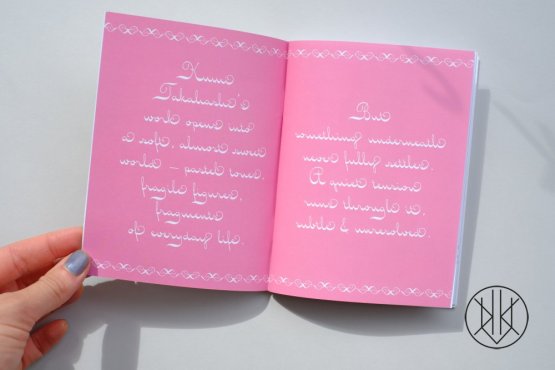 Kumo
Takahashi's
work opens into
a soft, almost sweet
world – pastel tones,
fragile figures,
fragments
of everyday life.
But
something underneath
never fully settles.
A quiet tension
runs through it,
subtle & unresolved.